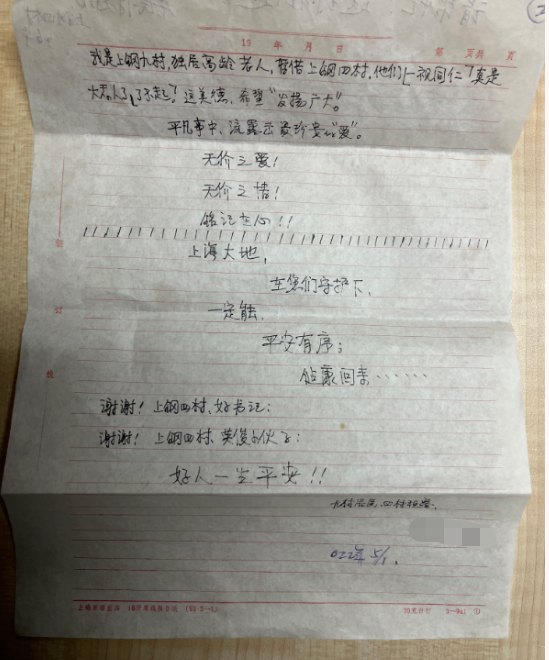 19 年 月 日 第 页共 页
我是上钢九村,独居高龄老人,暂借上钢四村,他们"一视同仁"真是
了不起!这美德、希望"发扬广大"。
平凡事中、流露示最珍贵的"爱"。
无价之爱!
无价之情!
铭记在心!!
上海大地,
在您们守护下、
一定能、
平安有序;
健康回来……
谢谢!上钢四村、好书记;
谢谢!上钢四村、英俊小伙子;
好人一生平安!!
022年 5/1.
装
订
线